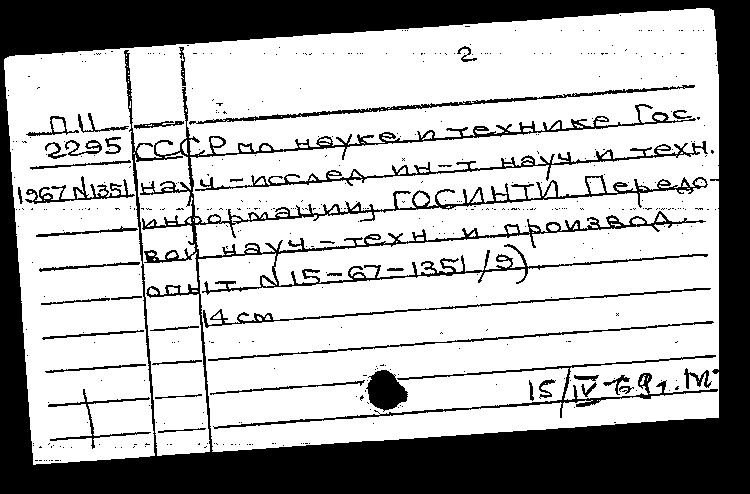 2
П11
2295 СССР по науке и технике. Гос.
1967 N1351 науч.-исслед. ин-т науч. и техн.
информации, ГОСИНТИ. Передо-
вой науч.-техн. и производ.
опыт. N 15-67-1351/9)
14 см
15/IV-69г.